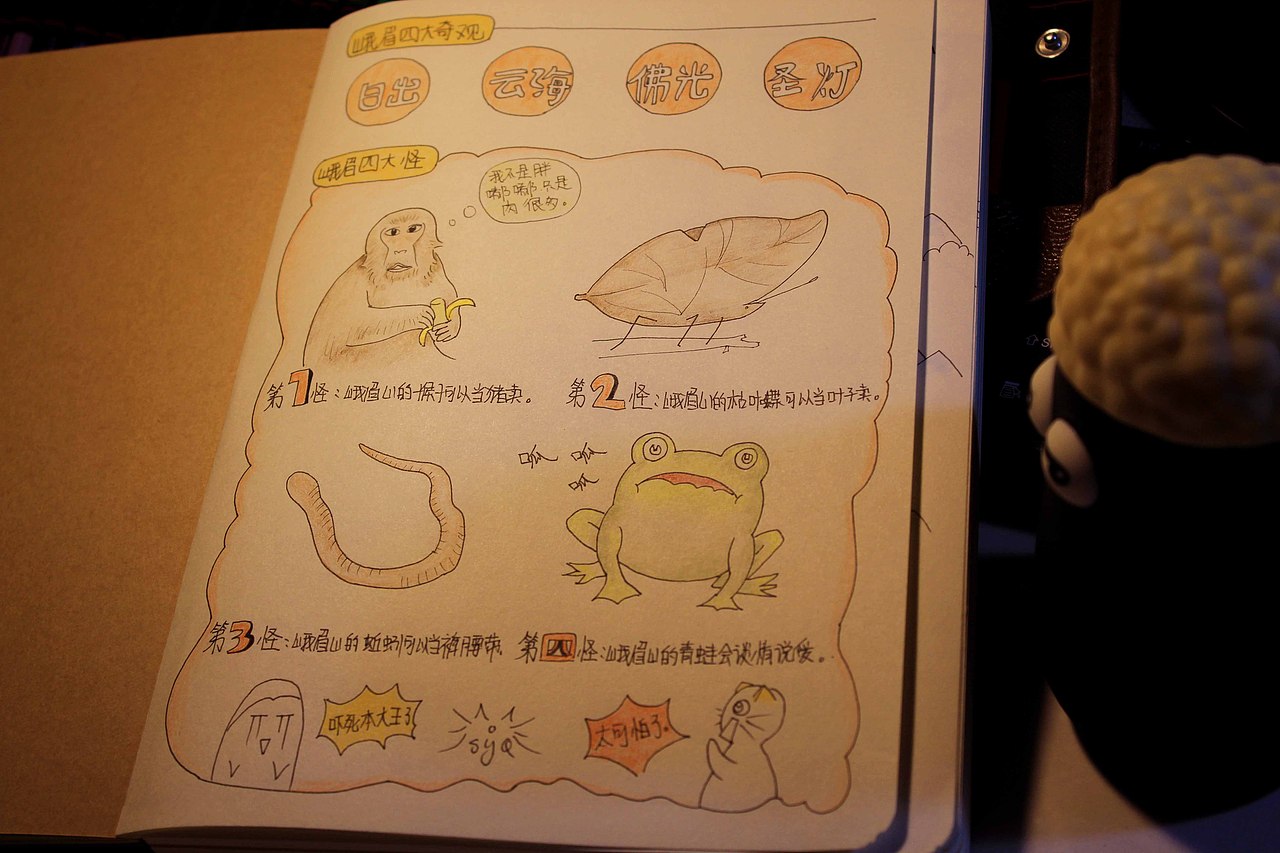 峨眉四大奇观
日出 云海 佛光 圣灯
峨眉四大怪
我不是胖
嘟嘟只是
肉很多。
第1怪：峨眉山的猴子可以当猪卖。
第2怪：峨眉山的枯叶蝶可以当叶子卖。
呱 呱
呱
第3怪：峨眉山的蚯蚓可以当裤腰带
第四怪：峨眉山的青蛙会谈情说爱。
吓死本大王了
syq
太可怕了。